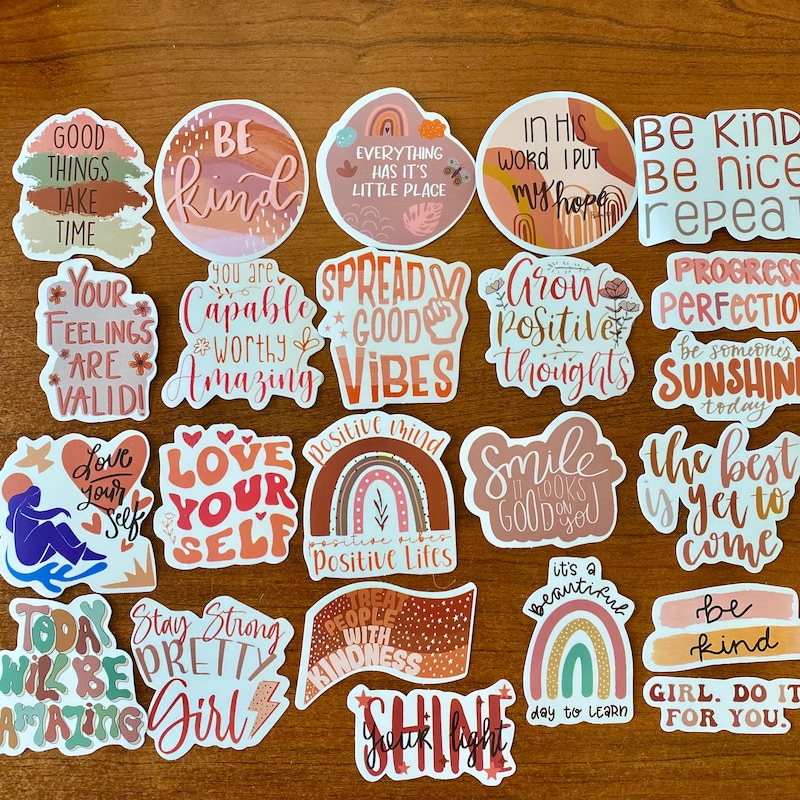 GOOD
THINGS
TAKE
TIME
BE
kind
EVERYTHING
HAS IT'S
LITTLE PLACE
IN HIS
WORD I PUT
MY hope
BE KIND
BE NICE
repeat
YOUR
FEELINGS
ARE
VALID!
you are
Capable
worthy
Amazing
SPREAD
GOOD
ViBES
Grow
positive
thoughts
PROGRESS
PERFECTION
be someone's
SUNSHINE
today
Love
your
self
LOVE
YOUR
SELF
Positive Mind
positive vibes
Positive Lifes
Smile
IT LOOKS
GOOD ON YOU
the best
is yet to
come
TODAY
WILL BE
AMAZING
Stay Strong
PRETTY
Girl
TREAT
PEOPLE
WITH
KINDNESS
SHINE
your light
it's a
beautiful
day to LEARN
be
kind
GIRL. DO IT
FOR YOU!